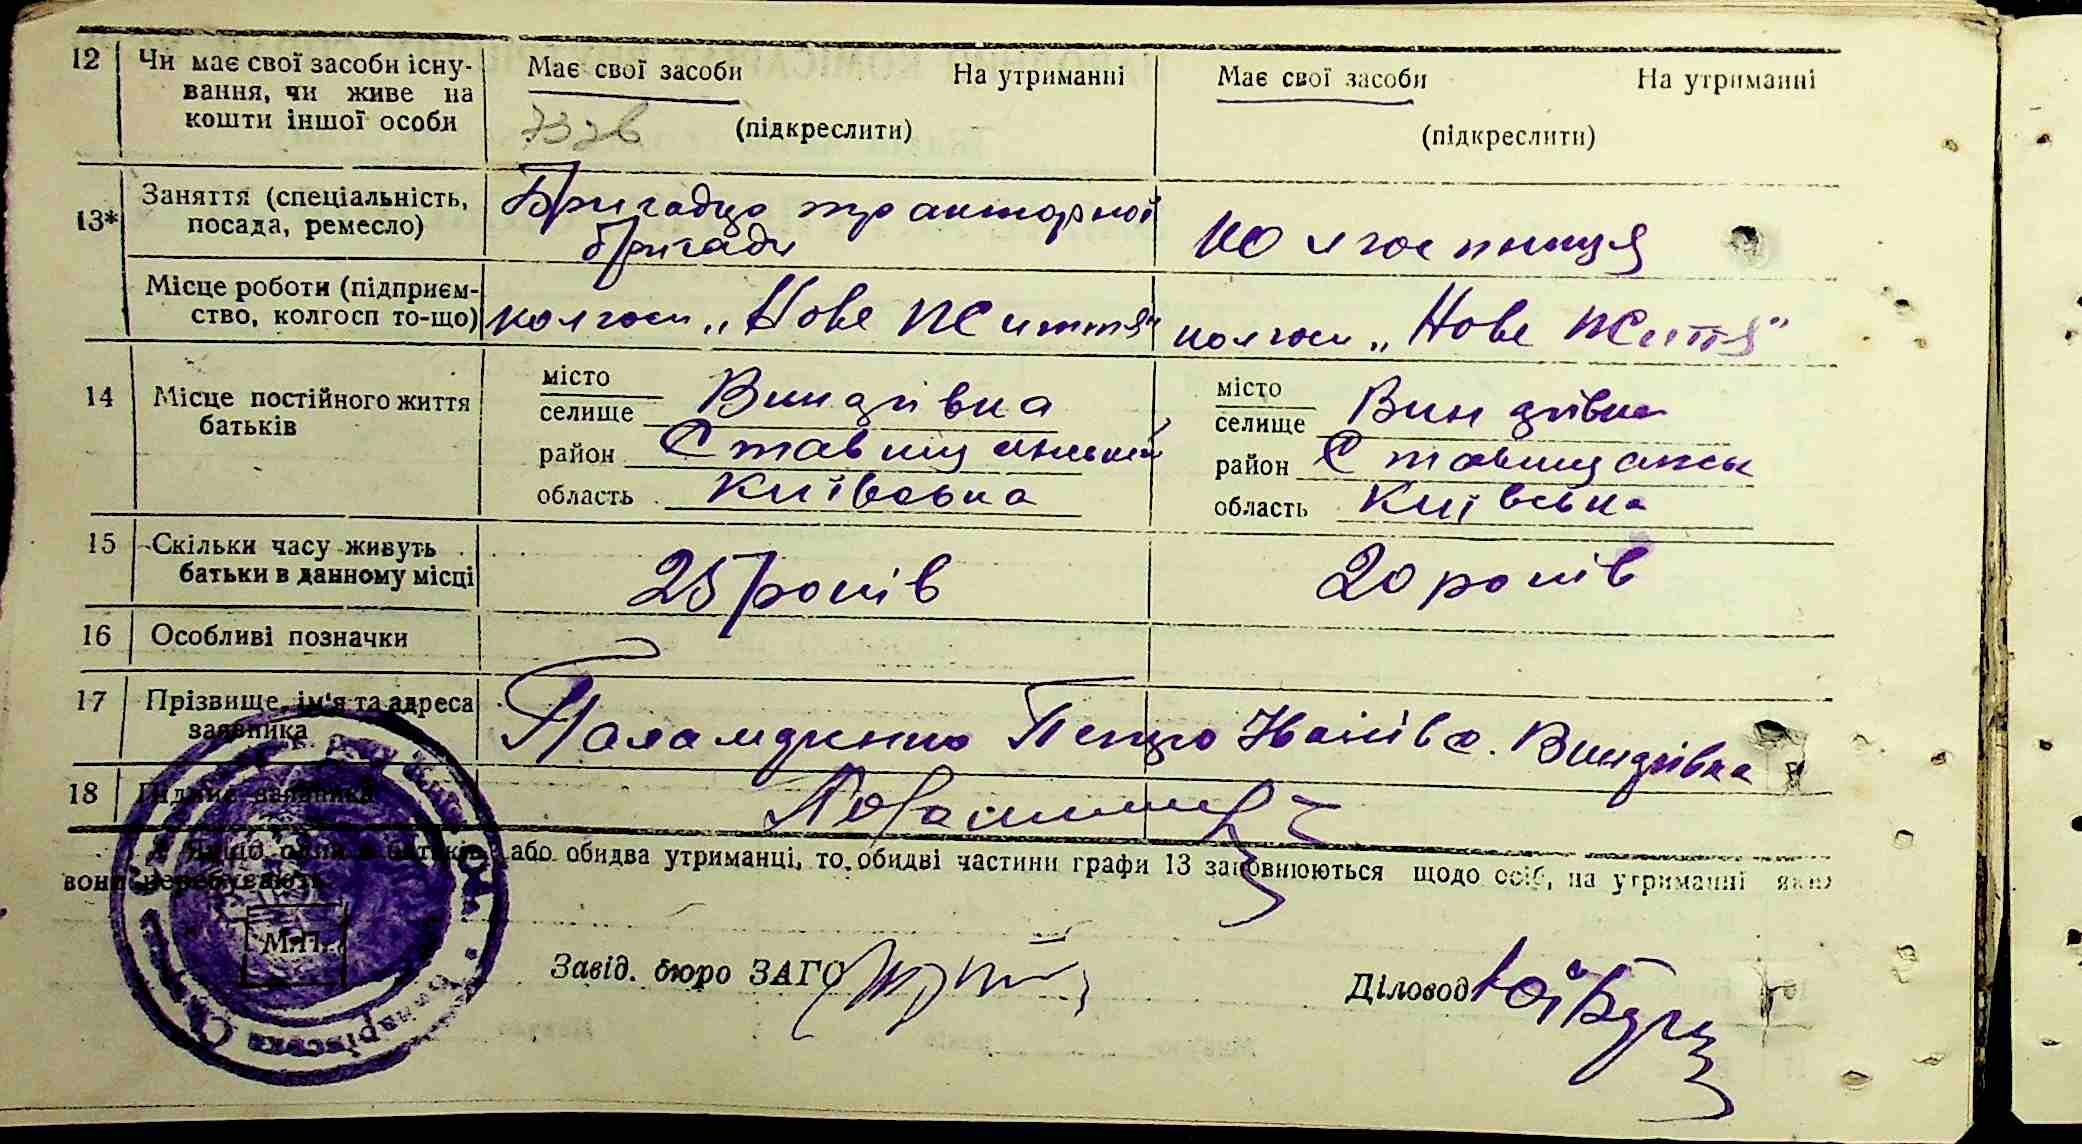 12 Чи має свої засоби існу- Має свої засоби На утриманні Має свої засоби На утриманні
вання, чи живе на
кошти іншої особи (підкреслити) (підкреслити)
13* Заняття (спеціальність, Бригадір тракторної
посада, ремесло) бригади колгоспниця
Місце роботи (підприєм-
ство, колгосп то-що) колгосп „Нове життя" колгосп „Нове життя"
14 Місце постійного життя місто місто
батьків селище Винарівка селище Винарівка
район Ставищанський район Ставищанськ
область Київська область Київська
15 Скільки часу живуть
батьки в данному місці 25 років 20 років
16 Особливі позначки
17 Прізвище, ім'я та адреса
заявника Паламаренко Петро с. Винарівка
18 Підпис заявника
* Якщо один з батьків або обидва утриманці, то обидві частини графи 13 заповнюються щодо осіб, на утриманні яких
вони перебувають.
М.П.
Завід. бюро ЗАГС
Діловод